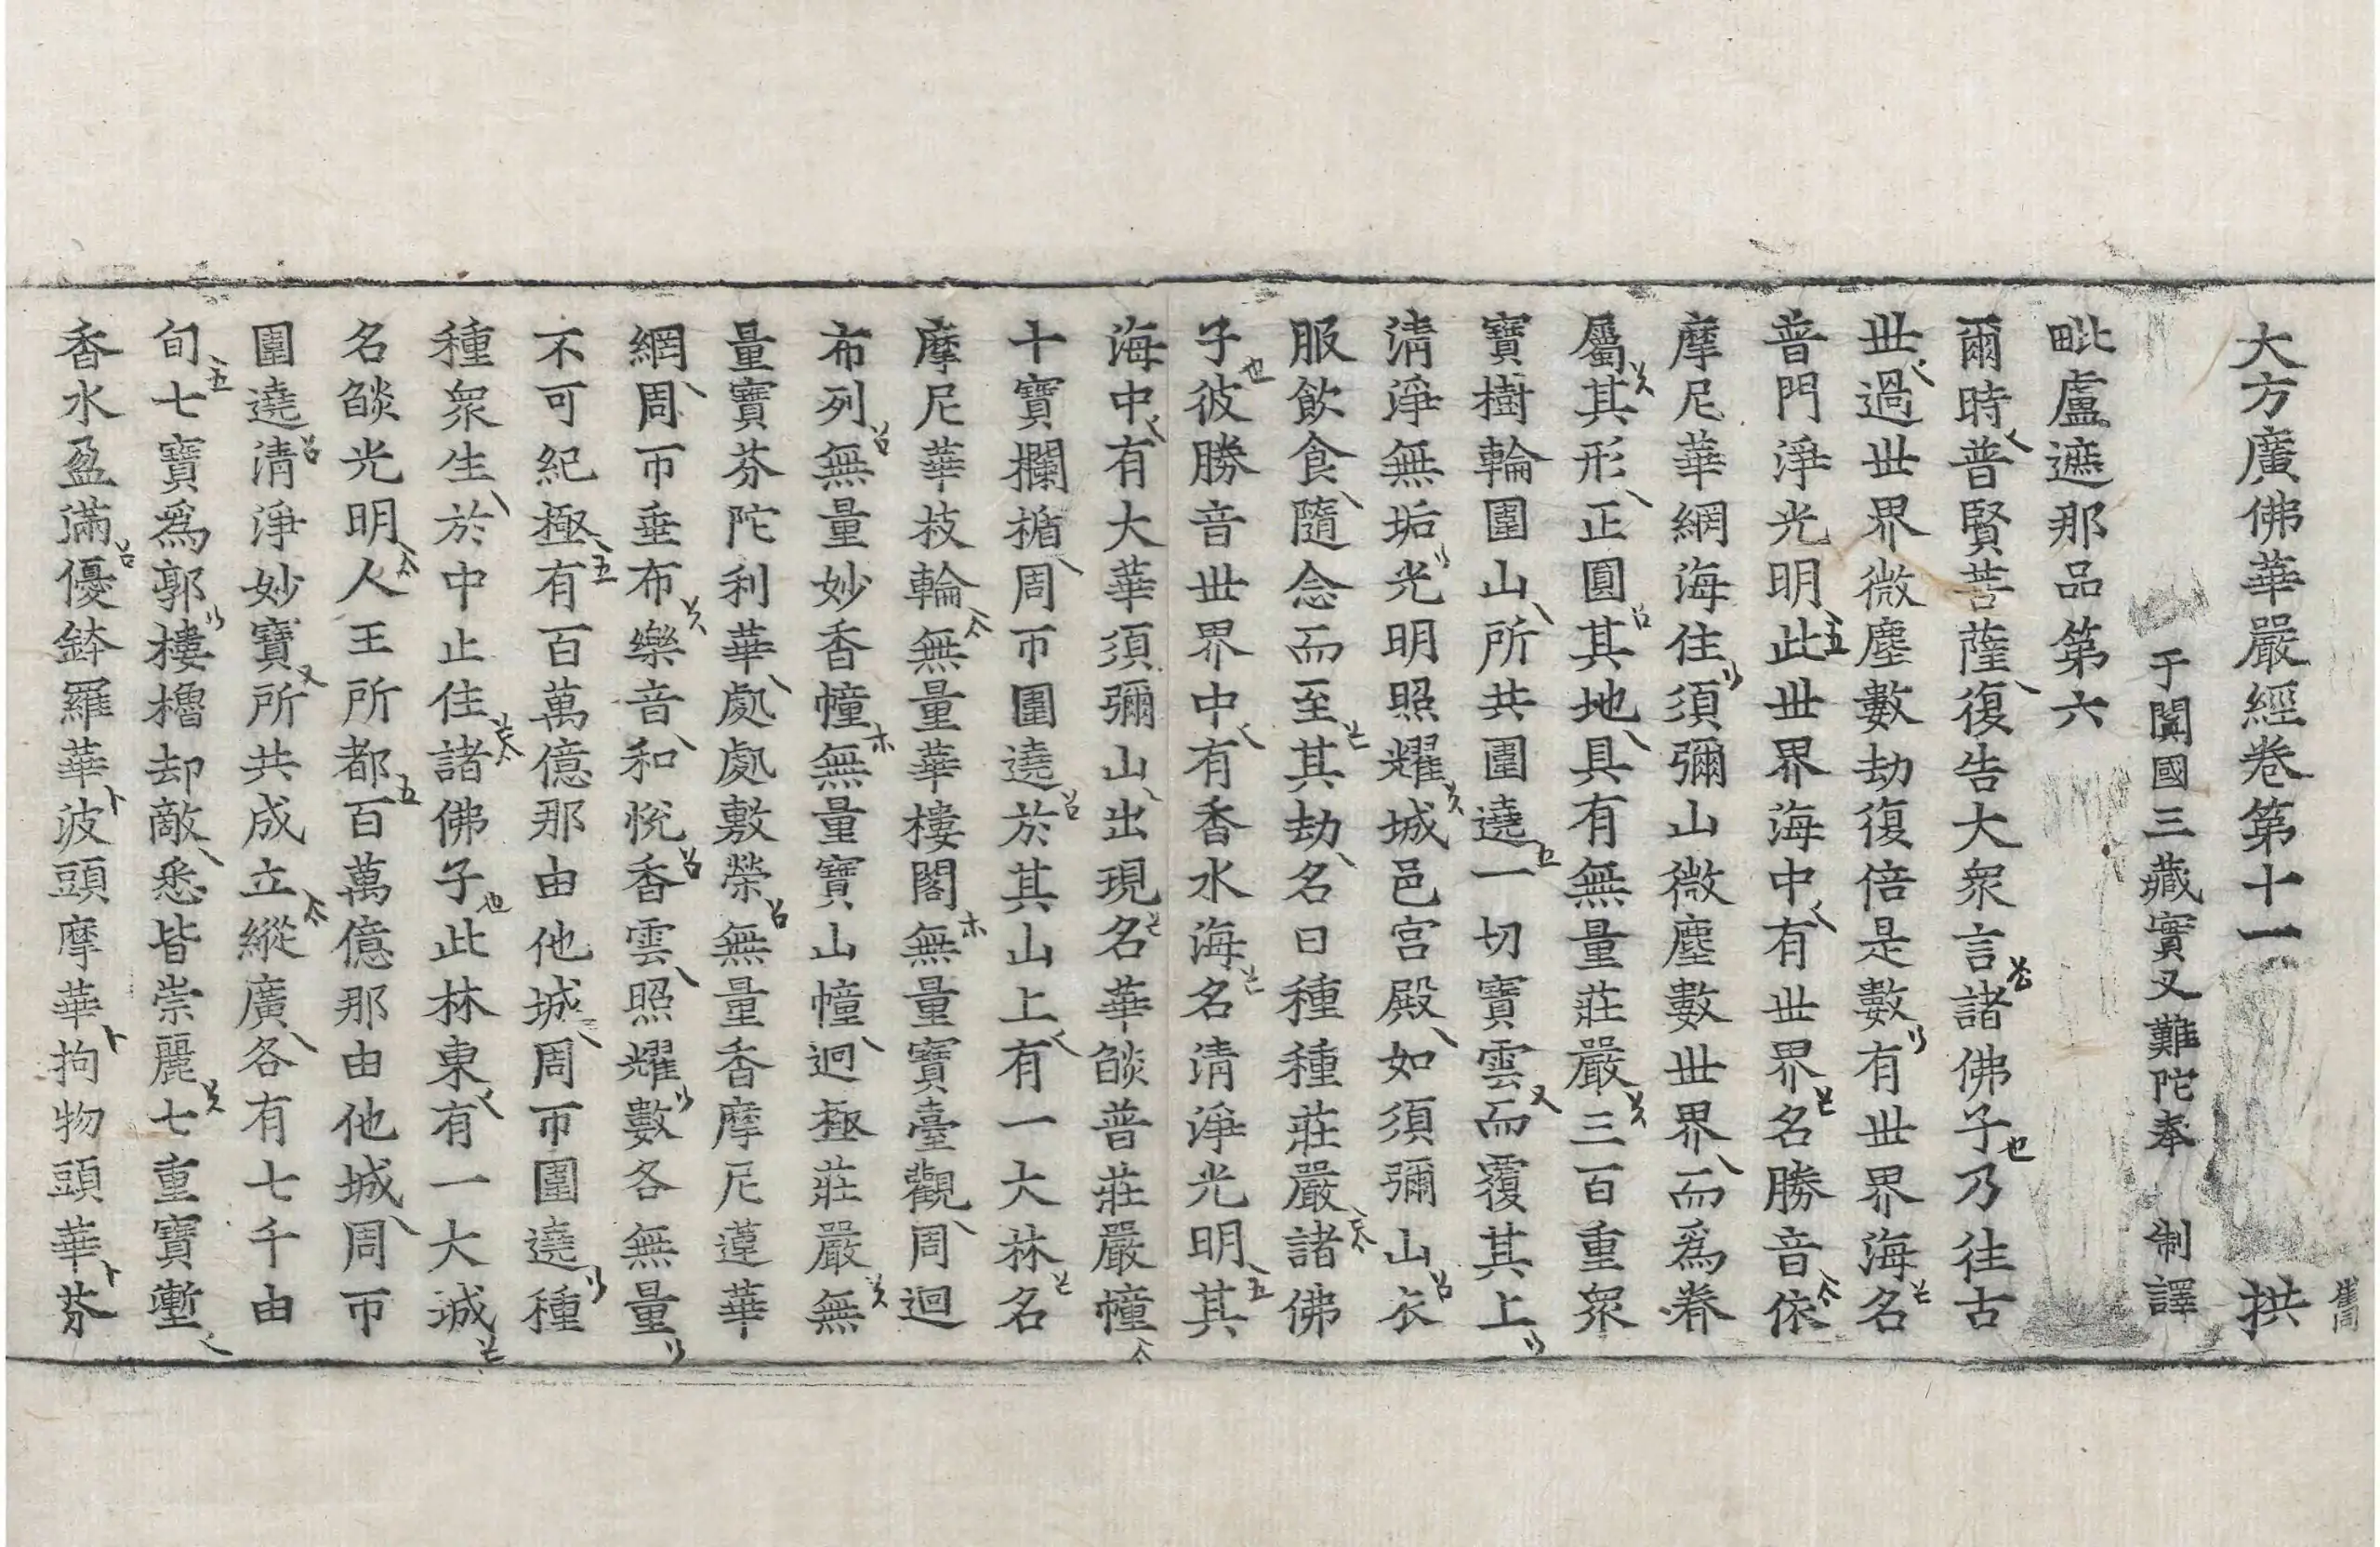 大方廣佛華嚴經卷第十一 拱
于闐國三藏實叉難陀奉 制譯
毗盧遮那品第六
爾時普賢菩薩復告大衆言諸佛子乃往古
世過世界微塵數劫復倍是數有世界海名
普門淨光明此世界海中有世界名勝音依
摩尼華網海住須彌山微塵數世界而爲眷
屬其形正圓其地具有無量莊嚴三百重衆
寶樹輪圍山所共圍遶一切寶雲而覆其上
清淨無垢光明照耀城邑宮殿如須彌山衣
服飲食隨念而至其劫名曰種種莊嚴諸佛
子彼勝音世界中有香水海名清淨光明其
海中有大華須彌山出現名華焰普莊嚴幢
十寶欄楯周帀圍遶於其山上有一大林名
摩尼華枝輪無量華樓閣無量寶臺觀周迴
布列無量妙香幢無量寶山幢迥極莊嚴無
量寶芬陀利華處處敷榮無量香摩尼蓮華
網周帀垂布樂音和悅香雲照耀數各無量
不可紀極有百萬億那由他城周帀圍遶種
種衆生於中止住諸佛子此林東有一大城
名焰光明人王所都百萬億那由他城周帀
圍遶清淨妙寶所共成立縱廣各有七千由
旬七寶爲郭樓櫓却敵悉皆崇麗七重寶塹
香水盈滿優鉢羅華波頭摩華拘物頭華芬